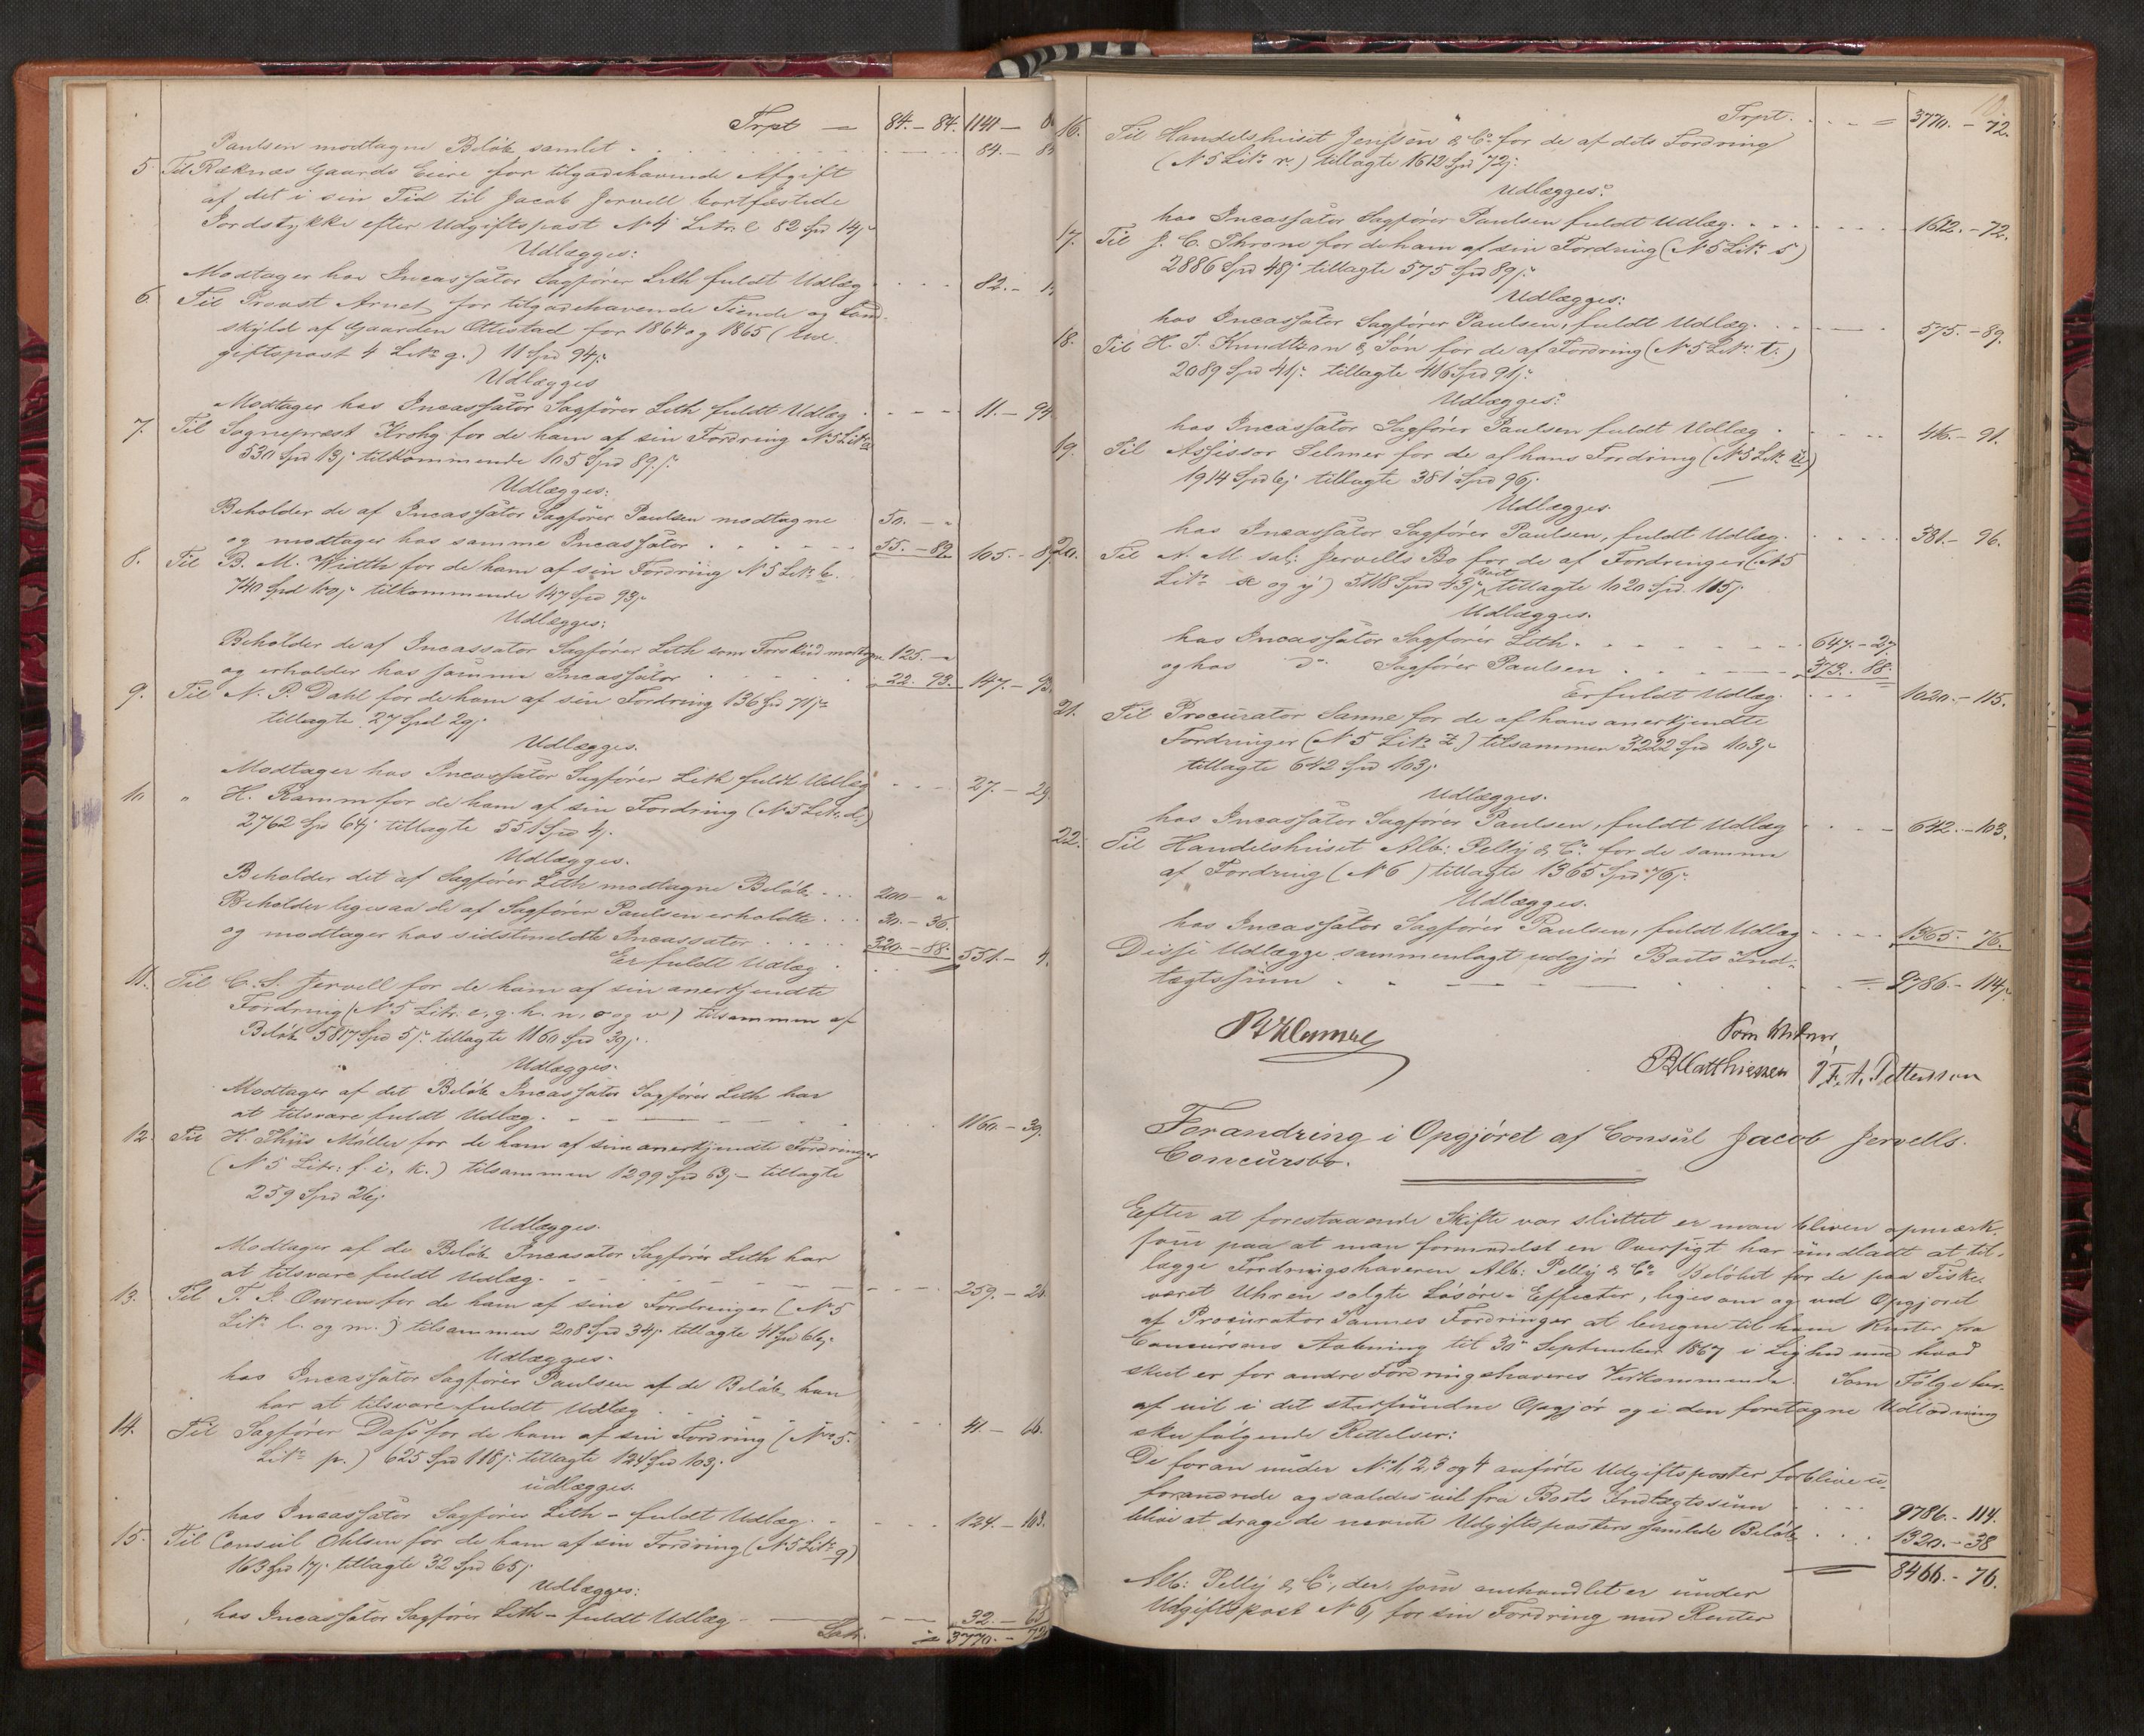 Trpt — 84. - 84. 1141 —
Paulsen modtagne Beløb samlet . . . 84. -
5. Til Reknæs Gaards Eiere for tilgodehavende Afgift
af det i sin Tid til Jacob Jervell bortfæstede
Jordstykke efter Udgiftspost No 4 Litr. e 82 Spd 14 s
Udlægges:
Modtager hos Incassator Sagfører Leth fuldt Udlæg . . . 82. - 1
6. Til Provst Arnet for tilgodehavende Tiende og Land-
skyld af Gaarden Ottestad for 1864 og 1865 (Ud-
giftspost 4 Litr. g.) 11 Spd 94 s
Udlægges
Modtager hos Incassator Sagfører Leth fuldt Udlæg . - - - 11. - 94
7. Til Sognepræst Krohg for de ham af sin Fordring No 5 Litr. a
530 Spd 13 s tilkommende 105 Spd 89 s.
Udlægges:
Beholder de af Incassator Sagfører Paulsen modtagne 50. - "
og modtager hos samme Incassator . . . . 55. - 89. 105. - 89
8. Til B. M. Width for de ham af sin Fordring No 5 Litr. b.
740 Spd 100 s tilkommende 147 Spd 93 s
Udlægges:
Beholder de af Incassator Sagfører Leth som Forskud modtagne 125. - "
og erholder hos samme Incassator . . . 22. 93. 147. - 93
9. Til N. P. Dahl for de ham af sin Fordring 136 Spd 71 s
tillagte 27 Spd 29 s
Udlægges.
Modtager hos Incassator Sagfører Leth fuldt Udlæg . - - . 27. - 29
10 " H. Ramm for de ham af sin Fordring (No 5 Litr. d.)
2762 Spd 64 s tillagte 551 Spd 4 s.
Udlægges.
Beholder det af Sagfører Leth modtagne Beløb . . . 200 - "
Beholder ligesaa de af Sagfører Paulsen erholdte . . . 30. - 36.
og modtager hos sidstmeldte Incassator . . . . . 320. - 88. 551. - 4.
Er fuldt Udlæg .
11. Til C. S. Jervell for de ham af sin anerkjendte
Fordring (No 5 Litr. e, g. h. n, o og v) tilsammen af
Beløb 5817 Spd 5 s tillagte 1160 Spd 39 s.
Udlægges.
Modtager af det Beløb Incassator Sagfører Leth har
at tilsvare fuldt Udlæg . — — — . . 1160. - 39.
12. Til H. Thiis Møller for de ham af sine anerkjendte Fordringer
(No 5 Litr: f. i. k.) tilsammen 1299 Spd 63 s - tillagte
259 Spd 26 s
Udlægges.
Modtager af de Beløb Incasator Sagfører Leth har
at tilsvare fuldt Udlæg . - - - - - - - 259. - 26.
13. Til T. P. Owren for de ham af sine Fordringer (No 5
Litr. l. og m.) tilsammen 208 Spd 34 s tillagte 41 Spd 66 s
Udlægges.
hos Incassator Sagfører Paulsen af de Beløb han
har at tilsvare fuldt Udlæg . . . 41. - 66.
14. Til Sagfører Dass for de ham af sin Fordring (No 5.
Litr. p.) 625 Spd 118 s tillagte 124 Spd 103 s
udlægges.
hos Incassator Sagfører Leth - fuldt Udlæg. . - - 124. - 103.
15. Til Consul Ohlsen for de ham af sin Fordring (No 5 Litr. q)
163 Spd 17 s tillagte 32 Spd 65 s
Udlægges:
hos Incassator Sagfører Leth - fuldt Udlæg — 32. - 65
Latr. = 3770. - 72
Trpt. . . = 3770. - 72.
16. Til Handelshuset Jenssen & Co for de af dets Fordring
(No 5 Litr. r.) tillagte 1612 Spd 72 s:
Udlægges:
hos Incassator Sagfører Paulsen fuldt Udlæg. . . . . . . . 1612. - 72.
17. Til J. C. Throne for de ham af sin Fordring (No 5 Litr. s)
2886 Spd 48 s tillagte 575 Spd 89 s.
Udlægges:
hos Incassator Sagfører Paulsen, fuldt Udlæg. . . — . 575. - 89.
18. Til H. T. Knudtzon & Søn for de af Fordring (No 5 Litr: t.)
2089 Spd 41 s. tillagte 416 Spd 91 s.
Udlægges:
hos Incassator Sagfører Paulsen fuldt Udlæg . . . . 416. - 91.
19. Til Assissor Selmer for de af hans Fordring (No 5 Litr. u)
1914 Spd 6 s tillagte 381 Spd 96 s
Udlægges.
hos Incassator Sagfører Paulsen, fuldt Udlæg. . . . . 381. - 96.
20. Til A. M. sal: Jervells Bo for de af Fordringer (No 5
Litr. x og y) 5118 Spd 43 s, tillagte 1020 Spd. 115 s
Udlægges.
hos Incassator Sagfører Leth . . . . . . . 647. - 27.
og hos Do Sagfører Paulsen . . . . . 373. 88.
Er fuldt Udlæg. . . . 1020. - 115.
21. Til Procurator Sanne for de af hans anerkjendte
Fordringer (No 5 Litr. z) tilsammen 3222 Spd 103 s
tillagte 642 Spd 103 s
Udlægges.
hos Incassator Sagfører Paulsen, fuldt Udlæg . . . - 642. - 103.
22. Til Handelshuset Alb: Pelly & Co. for de samme
af Fordring (No 6) tillagte 1365 Spd 76 s.
Udlægges.
hos Incassator Sagfører Paulsen, fuldt Udlæg . . . . 1365. 76.
Disse Udlægge sammenlagt udgjør Boets Ind-
tægtssum . . - — — . . = 9786. - 114 s
Som Vidner,
BMatthiessen F. A. Pettersen
Forandring i Opgjøret af Consul Jacob Jervells.
Concursbo.
Efter at forestaaende Skifte var sluttet er man bleven opmærk-
som paa at man formedelst en Oversigt har undladt at til-
lægge Fordringshaveren Alb: Pelly & Co Beløbet for de paa Fiske-
været Uhren solgte Løsøre-Effecter, ligesom og ved Opgjøret
af Procurator Sannes Fordringer at beregne til ham Renter fra
Concursens Aabning til 30te September 1867 i Lighed med hvad
skeet er for andre Fordringshaveres Vedkommende. Som Følge her-
af vil i det stedfundne Opgjør og i den foretagne Udlodning
ske følgende Rettelser:
De foran under No 1, 2, 3 og 4 anførte Udgiftsposter forblive u-
forandrede og saaledes vil fra Boets Indtægtssum . . . . 9786. - 114.
blive at drage de nævnte Udgiftsposters samlede Beløb . . . 1320. - 38
— 8466. - 76.
Alb: Pelly & Co, der, som omhandlet er under
Udgiftspost No 6, for sin Fordring med Renter